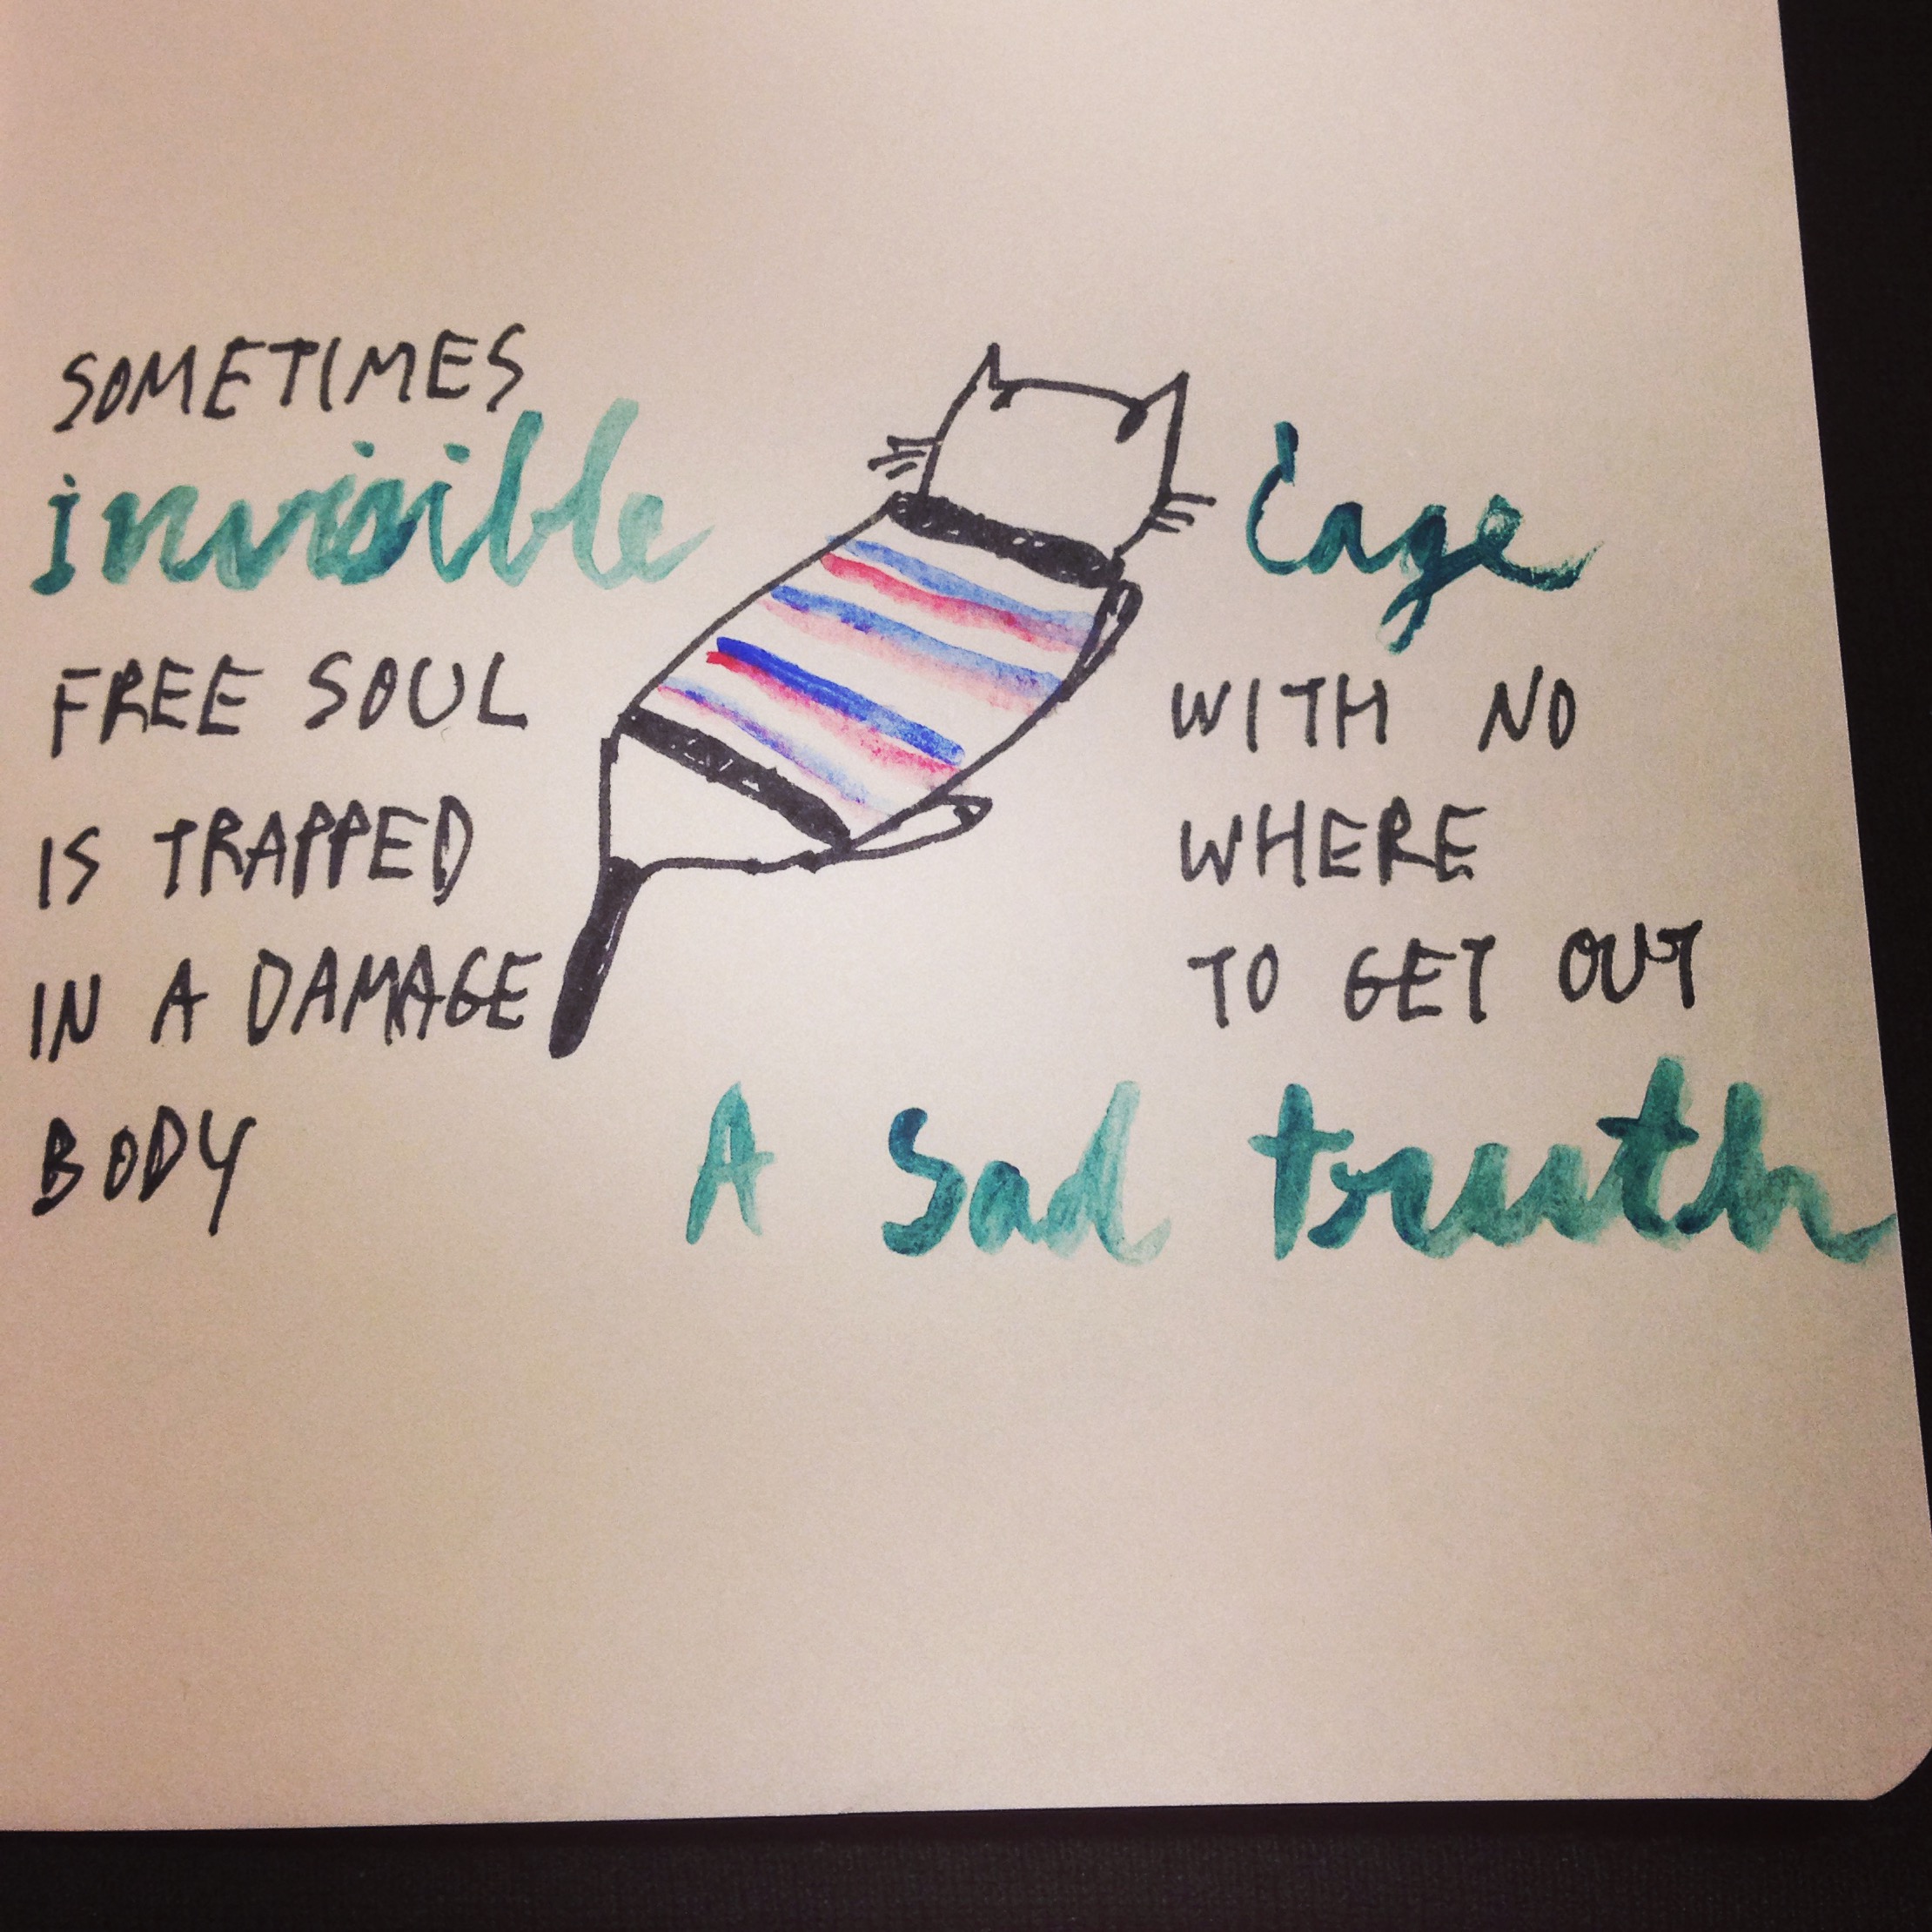 SOMETIMES
invisible
FREE SOUL
IS TRAPPED
IN A DAMAGE
BODY
Cage
WITH NO
WHERE
TO GET OUT
A Sad truth